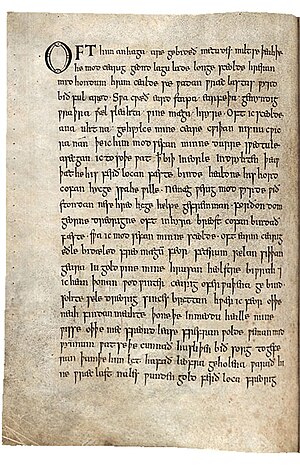 OFT him anhaga are gebideð metudes miltse þeah þe
he mod cearig geond lagu lade longe sceolde hreran
mid hondum hrim cealde sæ ƿadan ƿræc lastas ƿyrd
bið ful aræd. Sƿa cƿæð eard stapa earfeþa gemyndig
ƿraþra ƿæl sleahta ƿine mæga hryre. Oft ic sceolde
ana uhtna gehƿylce mine ceare cƿiþan nis nu cƿic
ra nan þe ic him mod sefan minne durre sƿeotule
asecgan ic to soþe ƿat þæt biþ in eorle indryhten þeaƿ
þæt he his ferð locan fæste binde healdne his hord
cofan hycge sƿa he ƿille. Ne mæg ƿerig mod ƿyrde ƿið
stondan ne se hreo hyge helpe gefremman. forðon dom
georne dreorigne oft in hyra breost cofan bindað
fæste. sƿa ic mod sefan minne sceolde. oft earm cearig
eðle bidæled freo mægum feor feterum sælan siþþan
geara iu gold ƿine mine hrusan heolstre biƿrah ⁊
ic hean þonan ƿod ƿinter cearig ofer ƿaþema ge bind
sohte sele dreorig sinces bryttan hƿær ic feor oþþe
neah findan meahte þone þe in meodu healle mine
ƿisse oþþe mec freond lease frefran ƿolde ƿeman mid
ƿynnum ƿat se þe cunnað hu sliþen bið sorg to gefe
ran þam þe him lyt hafað leofra geholena ƿarað hi
ne ƿræc last nales ƿunden gold ferð loca freorig